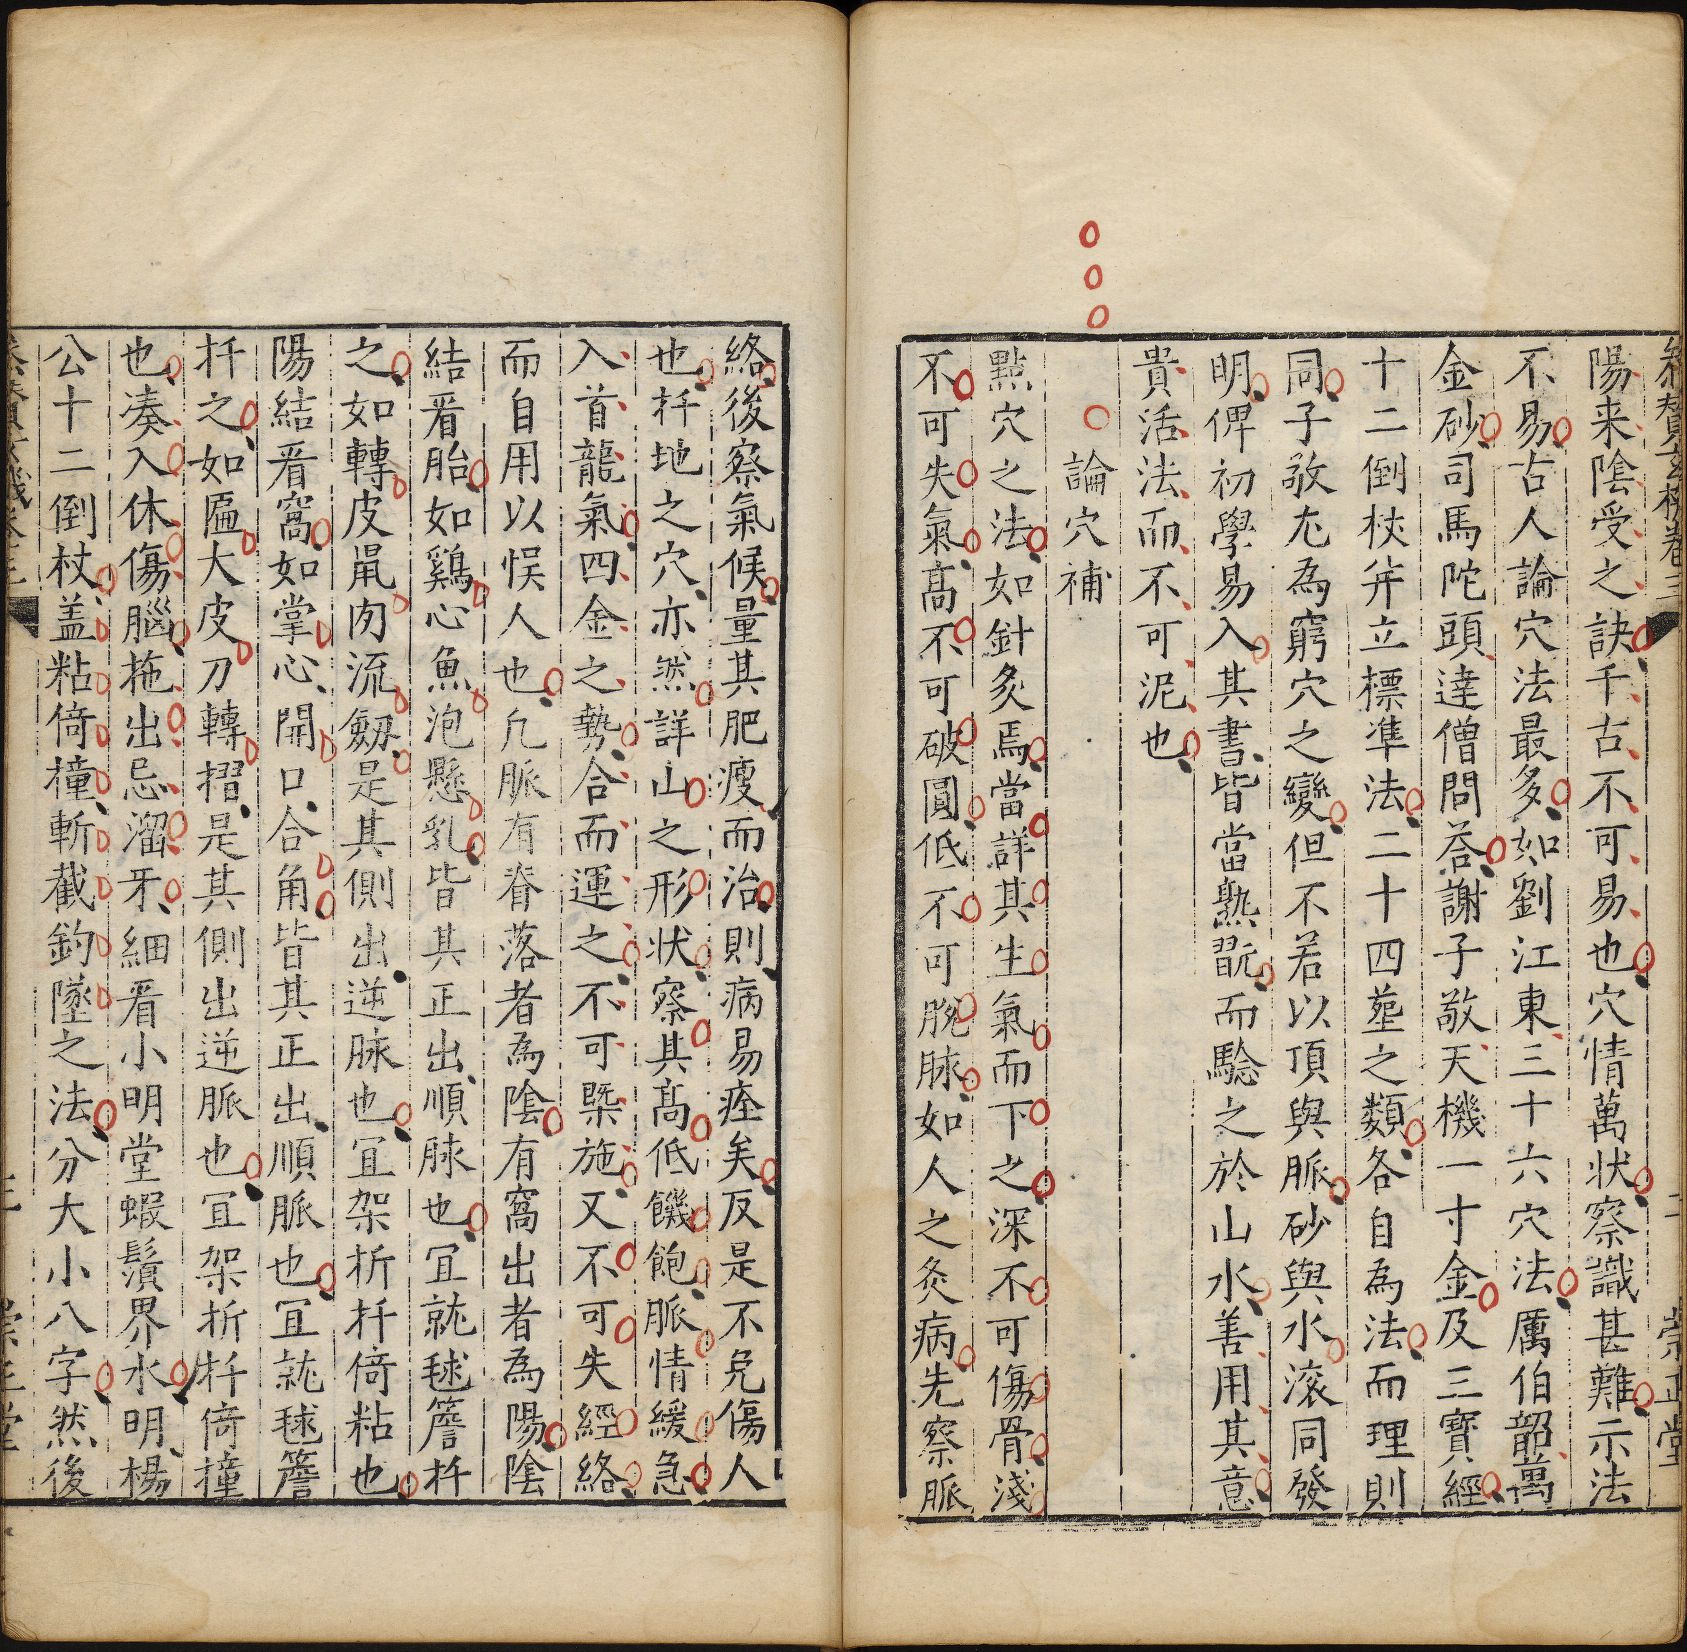 陽来陰受之訣千古不可易也穴情萬状察識甚難示法
不易古人論穴法最多如劉江東三十六穴法厲伯韶萬
金砂司馬陀頭達僧問荅謝子敬天機一寸金及三寶經
十二倒杖并立標準法二十四塟之類各自為法而理則
同子敬尤為窮穴之變但不若以頂與脈砂與水滚同發
明俾初學易入其書皆當熟翫而騐之於山水善用其意
貴活法而不可泥也
論穴補
點穴之法如針灸焉當詳其生氣而下之深不可傷骨淺
不可失氣高不可破圓低不可脫脉如人之灸病先察脈
絡後察氣候量其肥瘦而治則病易痊矣反是不免傷人
也扦地之穴亦然詳山之形状察其高低饑飽脈情緩急
入首龍氣四金之勢合而運之不可槩施又不可失經絡
而自用以悞人也凡脈有脊落者為陰有窩出者為陽陰
結看胎如鷄心魚泡懸乳皆其正出順脉也冝就毬簷扦
之如轉皮鼠肉流劒是其側出逆脉也冝架折扦倚粘也
陽結看窩如掌心開口合角皆其正出順脈也冝就毬簷
扦之如匾大皮刀轉摺是其側出逆脈也冝架折扦倚撞
也凑入休傷腦拖出忌溜牙細看小明堂蝦鬚界水明楊
公十二倒杖盖粘倚撞斬截釣墜之法分大小八字然後